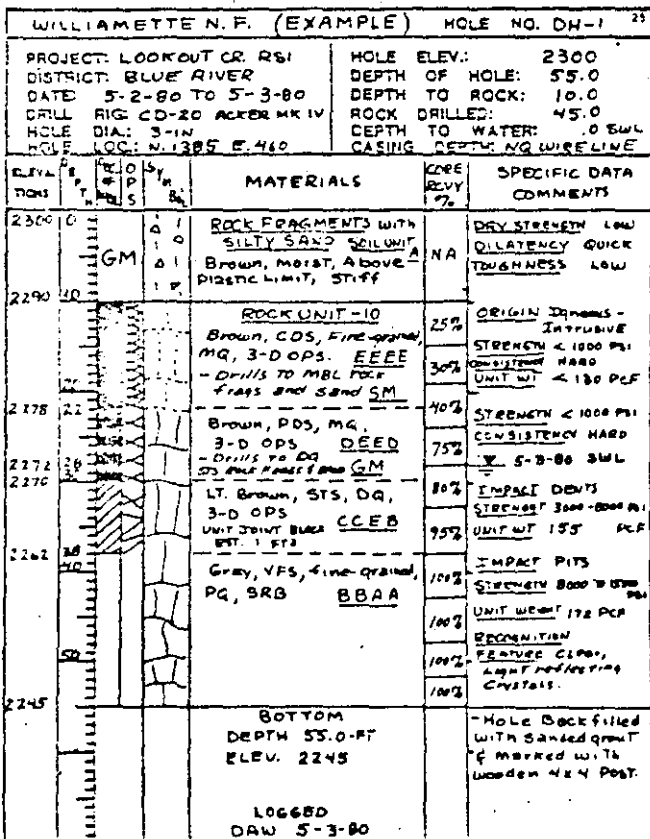 WILLIAMETTE N.F. (EXAMPLE) HOLE NO. DH-1 25
PROJECT: LOOKOUT CR. RSI
DISTRICT: BLUE RIVER
DATE 5-2-80 TO 5-3-80
DRILL RIG CD-20 ACKER MK IV
HOLE DIA.: 3-IN
HOLE LOC: N.1385 E.460
HOLE ELEV.: 2300
DEPTH OF HOLE: 55.0
DEPTH TO ROCK: 10.0
ROCK DRILLED: 45.0
DEPTH TO WATER: .0 SWL
CASING DEPTH: NQ WIRELINE
ELEVATIONS
DEPTH
OPS
SYMBOL
MATERIALS
CORE RCVY %
SPECIFIC DATA
COMMENTS
2300 0
GM
ROCK FRAGMENTS with
SILTY SAND SOIL UNIT A
Brown, MOIST, Above
Plastic Limit, STIFF
NA
DRY STRENGTH LOW
DILATENCY QUICK
TOUGHNESS LOW
2290 10
ROCK UNIT-10
Brown, CDS, Fine-grained,
MQ, 3-D OPS. EEEE
- Drills TO MBL rock
frags and sand SM
25%
30%
ORIGIN Igneous -
INTRUSIVE
STRENGTH < 1000 PSI
CONSISTENCY HARD
UNIT WT < 130 PCF
2278 22
Brown, PDS, MQ,
3-D OPS DEED
- Drills TO DQ
GM
40%
75%
STRENGTH < 1000 PSI
CONSISTENCY HARD
5-3-80 SWL
2272 28
2270 30
LT. Brown, STS, DQ,
3-D OPS
UNIT JOINT BLOCK CCEB
EST. 1 FT3
80%
95%
IMPACT DENTS
STRENGTH 3000-8000 PSI
UNIT WT 155 PCF
2262 38
40
Gray, VFS, fine-grained,
PQ, SRB BBAA
100%
100%
100%
100%
IMPACT PITS
STRENGTH 8000 TO 15000 PSI
UNIT WEIGHT 172 PCF
RECOGNITION
FEATURE CLEAR,
Light reflecting
Crystals.
50
2245
BOTTOM
DEPTH 55.0-FT
ELEV. 2245
LOGGED
DAW 5-3-80
-Hole Backfilled
with Sanded grout
& marked with
wooden 4x4 POST.